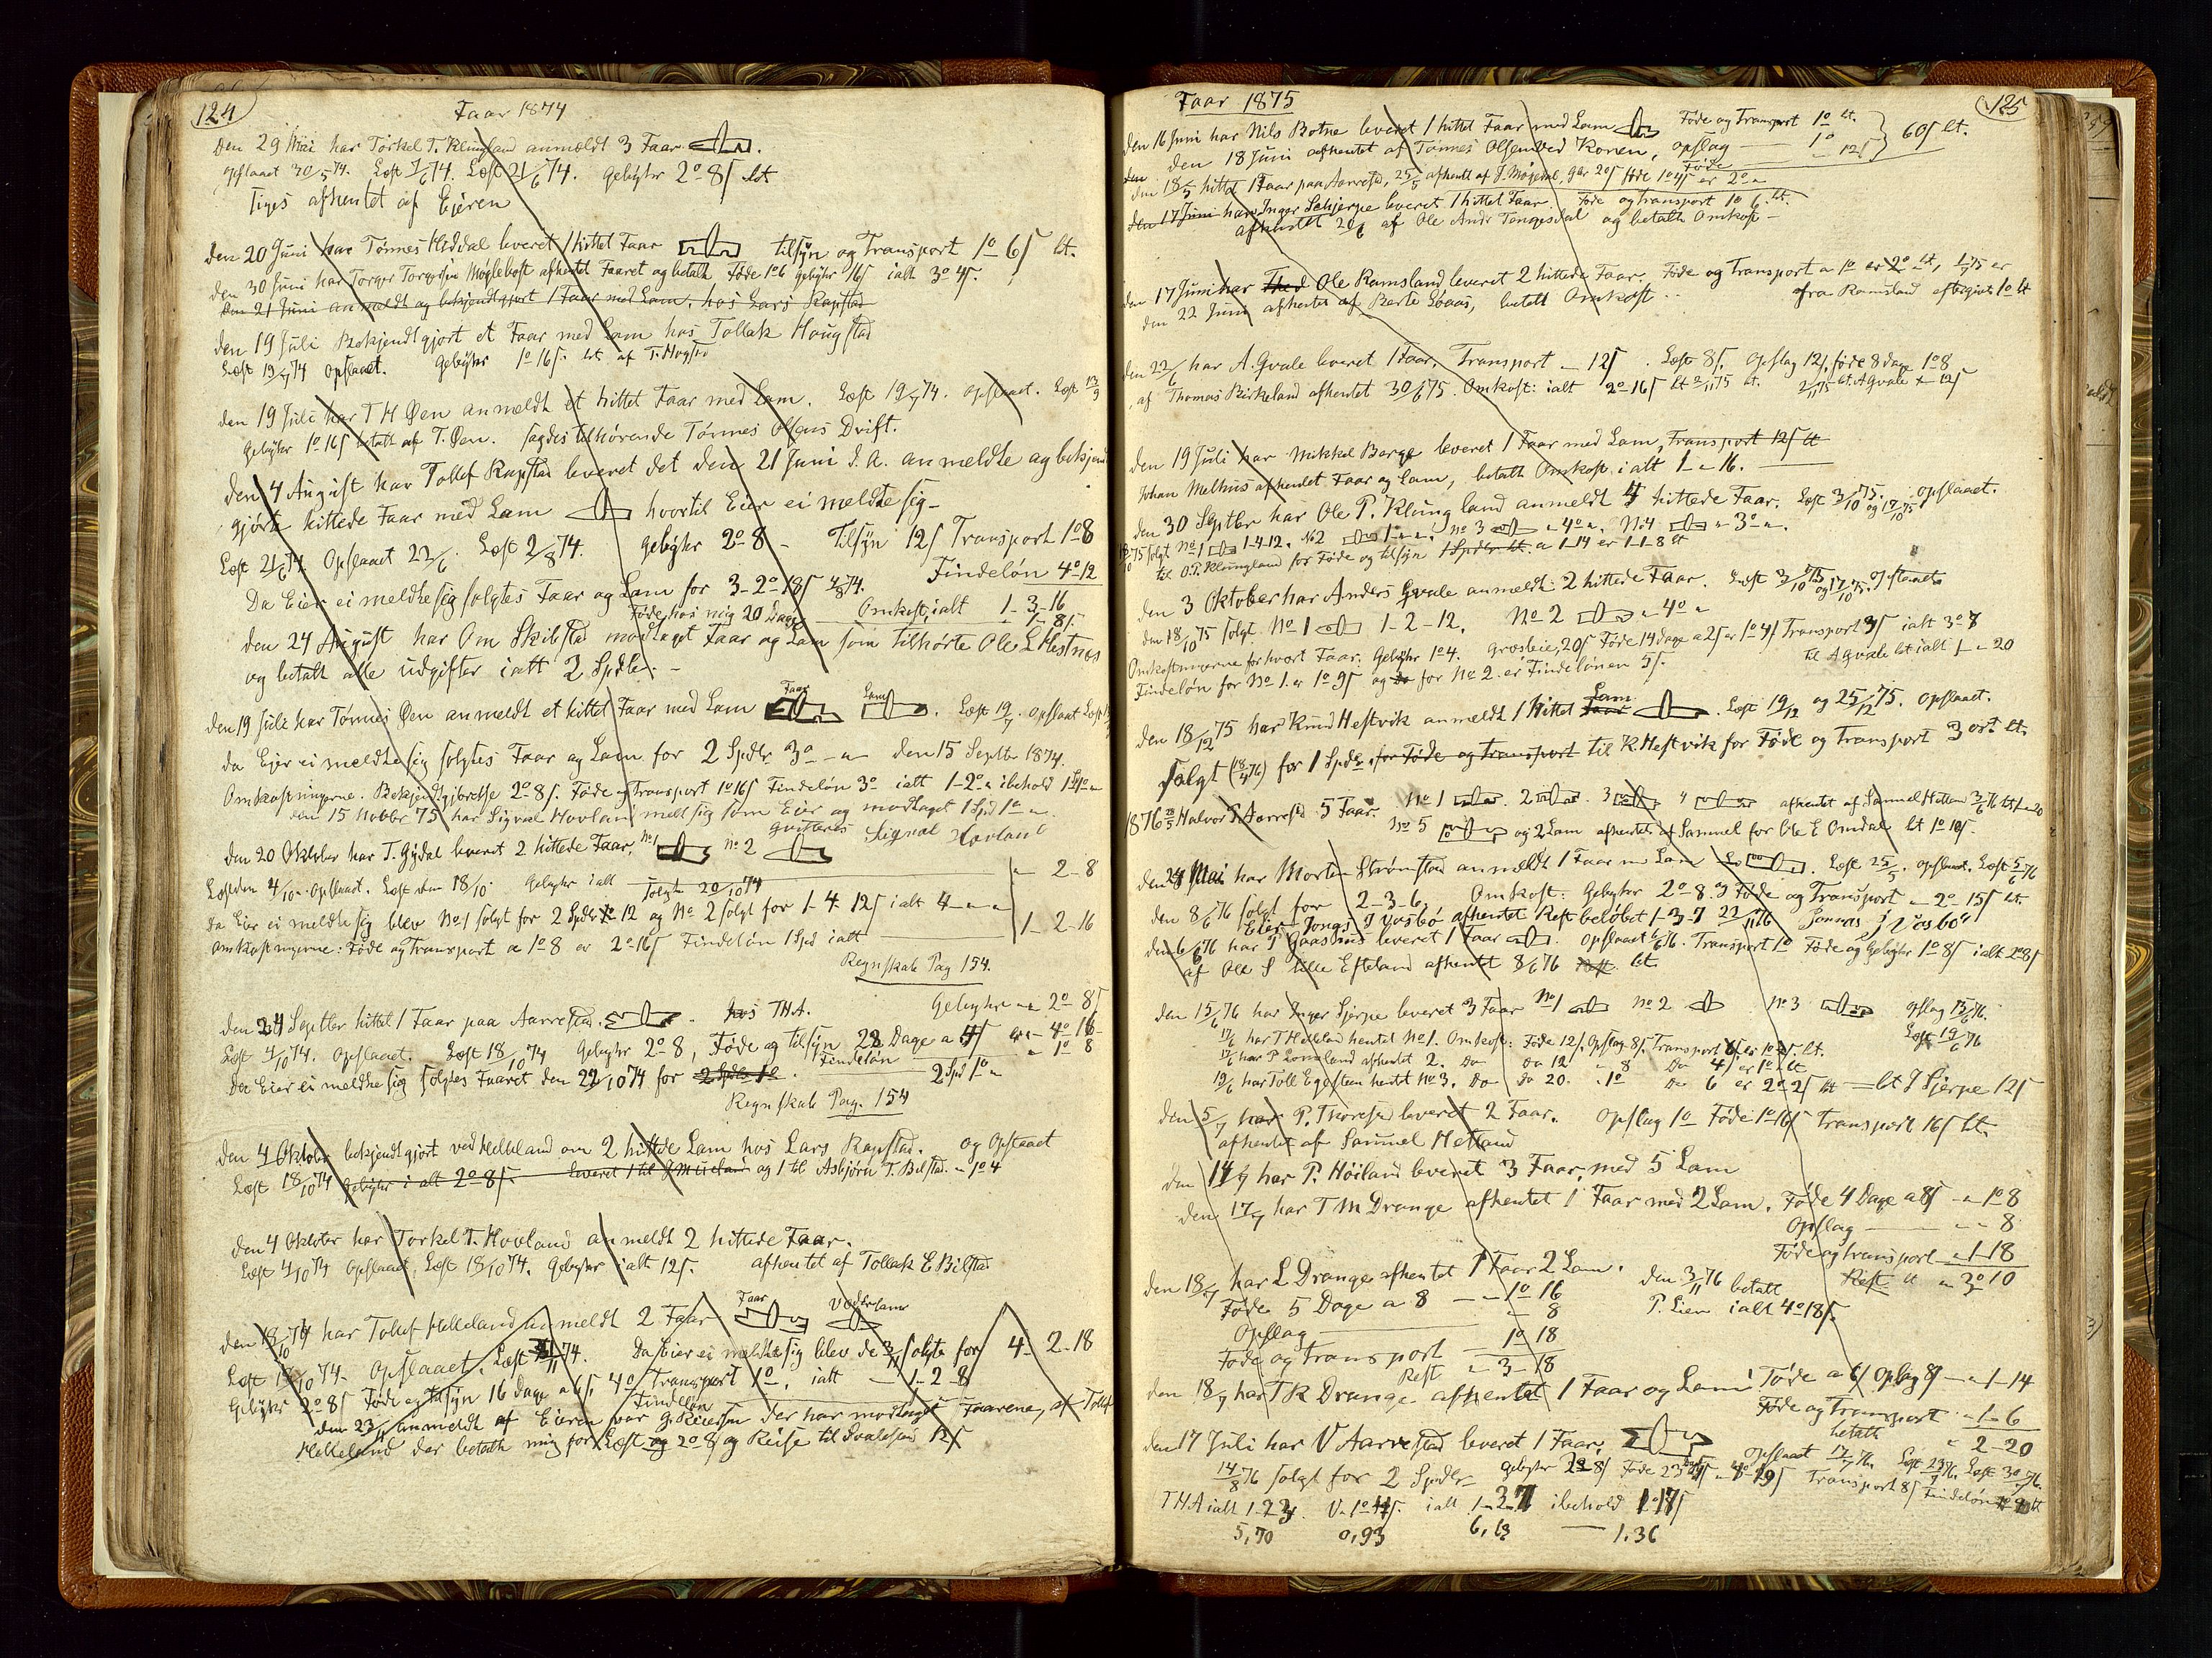 124
Faar 1874
Den 29 Mai har Torkel T. Klungland anmeldt 3 Faar
opslaaet 30/5 74. Læst 7/6 74. Læst 21/6 74. Gebyhr 2º 8ſ bt
Siges afhentet af Eieren
den 20 Juni har Tönnes Hiddal leveret 1 hittet Faar tilsyn og Transport 1º 6ſ bt.
den 30 Juni har Torger Torgersen Möglebost afhentet Faaret og betalt Föde 1º 6 Gebyhr 16ſ ialt 3º 4ſ.
den 21 Juni anmeldt og bekjendtgjort 1 Faar med Lam, hos Lars Rapstad
den 19 Juli Bekjendtgjort et Faar med Lam hos Tollak Hougstad
Læst 19/7 74 opslaaet. Gebyhr 1º 16ſ. bt af T. Hogstd
den 19 Juli har T H Øen anmeldt et hittet Faar med Lam. Læst 19/7 74. opslaaet. Læst 13/9
Gebyhr 1º 16ſ betalt af T. Øen. sagdes tilhørende Tönnes Olsens Drift.
den 4 August har Tollef Rapstad leveret det den 21 Juni d. A. anmeldte og bekjendt
gjorte hittede Faar med Lam hvortil Eier ei meldte sig -
Læst 21/6 74. Opslaaet 22/6. Læst 2/8 74. Gebyhr 2º 8 - Tilsyn 12ſ Transport 1º 8
Findelön 4º 12
Da Eier ei meldte sig solgtes Faar og Lam for 3-2º-18ſ 4/8 74. Omkost. ialt 1-3-16
Föde hos mig 20 Dage 1- 8ſ.
den 24 August har Om Skibstad modtaget Faar og Lam som tilhörte Ole L Hestnes
og betalt alle udgifter ialt 2 Spdlr. -
den 19 Juli har Tönnes Øen anmeldt et hittet Faar med Lam Faar Lam . Læst 19/7. opslaaet Læst
da Eier ei meldte sig solgtes Faar og Lam for 2 Spdlr 3º - den 15 Septbr 1874.
Omkostningerne. Bekjendtgjörelse 2º 8ſ. Föde og Transport 1º 16ſ Findelön 3º ialt 1-2º ibehold
den 15 Novbr 75 har Sigval Hovland meldt sig som Eier og modtaget 1 Spd 1º
qvitteres Sigval Hovland
den 20 Oktober har T. Gydal leveret 2 hittede Faar, No 1 no 2
Læst den 4/10. Opslaaet. Læst den 18/10. Gebyhr ialt 2-8
solgte 20/10 74
Da Eier ei meldte sig blev No 1 solgt for 2 Spdlr 12 og No 2 solgt for 1-4. 12ſ ialt 4
Omkostningerne: Föde og Transport a 1º 8 er 2º 16ſ Findelön 1 Spd ialt 1-2-16
Regnskab Pag 154.
den 24 Septbr hittet 1 Faar paa Aarrestad. hos TH.A. Gebyhr 2º 8ſ
Læst 4/10 74. opslaaet. Læst 18/10 74 Gebyhr 2º 8, Föde og tilsyn 22 Dage a 4ſ er 4º 16
Findelön 1º 8
Da Eier ei meldte sig solgtes Faaret den 22/10 74 for 2 Spd 1º
Regnskab Pag. 154
den 4 Oktober bekjendtgjort ved Helleland om 2 hittede Lam hos Lars Rapstad. og Opslaaet
Læst 18/10 74 Gebyhr i alt 2º 8ſ. leveret 1 til og 1 til Asbjörn T. Bilstad. 1º 4
den 4 Oktober har Torkel T. Hovland anmeldt 2 hittede Faar.
Læst 4/10 74 opslaaet, Læst 18/10 74. Gebyhr ialt 12ſ. afhentet af Tollak E Bilstad
den 18/10 74 har Tollef Helleland anmeldt 2 Faar Faar Væderlam
Læst 18/10 74. Opslaaet. Læst 74. Da Eier ei meldte sig blev de 3/11 solgte for 4-2-18
Gebyhr 2º 8ſ Föde og tilsyn 16 Dage a 6ſ. 4º Transport 1º. ialt 1-2-8
Findelön
den 23/11 anmeldt af Eieren var G. Reiersen der har modtaget Faarene, af Tollef
Helleland der betalte mig for Læst og 2º 8ſ og Reise til Svalestad 12ſ
125
Faar 1875
den 16 Juni har Nils Botne leveret 1 hittet Faar med Lam Föde og Transport 1º bt.
den 18 Juni afhentet af Tönnes Olsen ved Konen, opslag 1º
12ſ 60ſ bt.
den 18/5 hittet 1 Faar paa Aarrestad, 25/5 afhentet af J. Mögedal, Gbr 20ſ Föde er 2º
den 17 Juni har Inger Schjerpe leveret 1 hittet Faar. Föde og Transport 1º 6 bt.
afhentet 20/6 af Ole Andr Tengesdal og betalt Omkost -
den 17 Juni har Ole Ramsland leveret 2 hittede Faar. Föde og Transport a 1º er 2º bt,
den 22 Juni afhentet af Berte Loaas, betalt Omkost.. fra Ramsland eftergivet 1º bt
den 22/6 har A. Gvale leveret 1 Faar. Transport 12ſ. Læst 8ſ. Opslag 12ſ. föde 8 dage 1º 8
af Thomas Birkeland afhentet 30/6 75. Omkost: ialt 2º 16ſ bt 2/11 75 bt. 2/11 75 bt. A Gvale 12ſ
den 19 Juli har Mikkel Berge leveret 1 Faar med Lam, Transport 12ſ bt
Johan Melhus afhentet Faar og Lam, betalt Omkost. ialt 1 - 16.
den 30 Septbr har Ole P. Klungland anmeldt 4 hittede Faar. Læst 3/10 75. og 17/10 75 opslaaet.
solgt No 1 1-4-12. No 2 1 No 3 4º. No 4 3º.
til O.P. Klungland for Föde og tilsyn 1 Spdlr bt. a 1-14 er 1-1-8 bt
den 3 Oktober har Anders Gvale anmeldt: 2 hittede Faar. Læst 3/10 75 og 17/10 75. Opslaaet
den 18/10 75 solgt. No 1 1-2-12. No 2 4º
Omkostningerne for hvert Faar: Gebyhr 1º 4. Græsleie, 20ſ Föde 14 dage a 2ſ er 1º 4ſ Transport 9ſ ialt 3º 8
Findelön for No 1. er 1º 9ſ og for No 2. er Findelönen 5ſ. til A Gvale bt ialt 1 - 20
den 18/12 75 har Knud Hestvik anmeldt 1 hittet Faar Lam . Læst 19/12 og 25/12 75. Opslaaet.
Solgt (18/4 76) for 1 Spdlr, for Föde og Transport til K. Hestvik for Föde og Transport 3 ort bt.
1876 Halvor T Aarrestd 5 Faar. No 1 2 3 4 afhentet af Samuel Hetten 3/6 76
No 5 og 2 Lam afhentet af Samuel for Ole E Omdal bt 1º 10ſ.
den 24 Mai har Morten Strömstad anmeldt 1 Faar m Lam . Læst 25/5. opslaaet. Læst 5/6 76
den 8/6 76 solgt for 2-3-6. Omkost: Gebyhr 2º 8 Föde og Transport - 2º 15ſ bt.
Eier Jonas J Vasbö afhentet Restbelöbet 1-3-7 22/11 76 Jonas J Vasbö
den 6/6 76 har P Gaassius leveret 1 Faar . Opslaaet 6/6 76. Transport 1º Föde og Gebyhr 1º 8ſ ialt 2º 8ſ
af Ole S Lille Efteland afhentet 8/6 76 bt.
den 15/6 76 har Inger Sjerpe leveret 3 Faar No 1 No 2 No 3 opslag 15/6 76.
17/6 har T Helleland hentet No 1. Omkost: Föde 12ſ. Opslag 8ſ. Transport bt. Læst 19/6 76
17/6 har P Lomeland afhentet 2. Do Do 12 8 Do 4ſ er 1º bt
19/6 har Toll Egesteen hentet No 3. Do Do 20. 1º Do 6 er 2º 2ſ bt = bt J Sjerpe 12ſ
den 5/7 har P. Thoresen leveret 2 Faar. Opslag 1º Föde 1º 16ſ Transport 16ſ bt.
afhentet af Samuel Hetland
den 14/7 har P. Höiland leveret 3 Faar med 5 Lam
den 17/7 har T M Drange afhentet 1 Faar med 2 Lam. Föde 4 Dage a 8ſ 1º 8
Opslag 8
Föde og Transport 1-18
Rest bt 3º 10
den 18/7 har L Drange afhentet 1 Faar 2 Lam. den 3/11 76 betalt
Föde 5 Dage a 8 1º 16 P. Lien ialt 4º 18ſ.
Opslag 8
Föde og Transport 1º 18
Rest 3-18
den 18/7 har T K Drange afhentet 1 Faar og Lam Föde a 6ſ Oplag 8ſ 1-14
Föde og Transport 1-6
betalt 2-20
den 17 Juli har V Aarrestad leveret 1 Faar. opslaaet 17/7 76. Læst 23/7 76. Læst 30/7 76.
14/8 76 solgt for 2 Spdlr Gebyhr 2º 8ſ Föde 23 Transport 8ſ Findelön
THA ialt 1-2-3. V. 1º 4ſ. ialt 1-3-7 ibehold 1º 17ſ
5,70 0,93 6,63 1,36